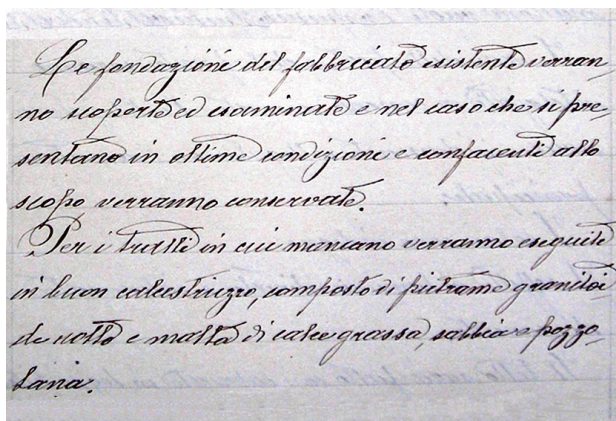 Le fondazioni del fabbricato esistente verran-
no scoperte ed esaminate e nel caso che si pre-
sentano in ottime condizioni e confacenti allo
scopo verranno conservate.
Per i tratti in cui mancano verranno eseguite
in buon calcestruzzo, composto di pietrame granitoi-
de rotto e malta di calce grassa, sabbia e pozzo-
lana.